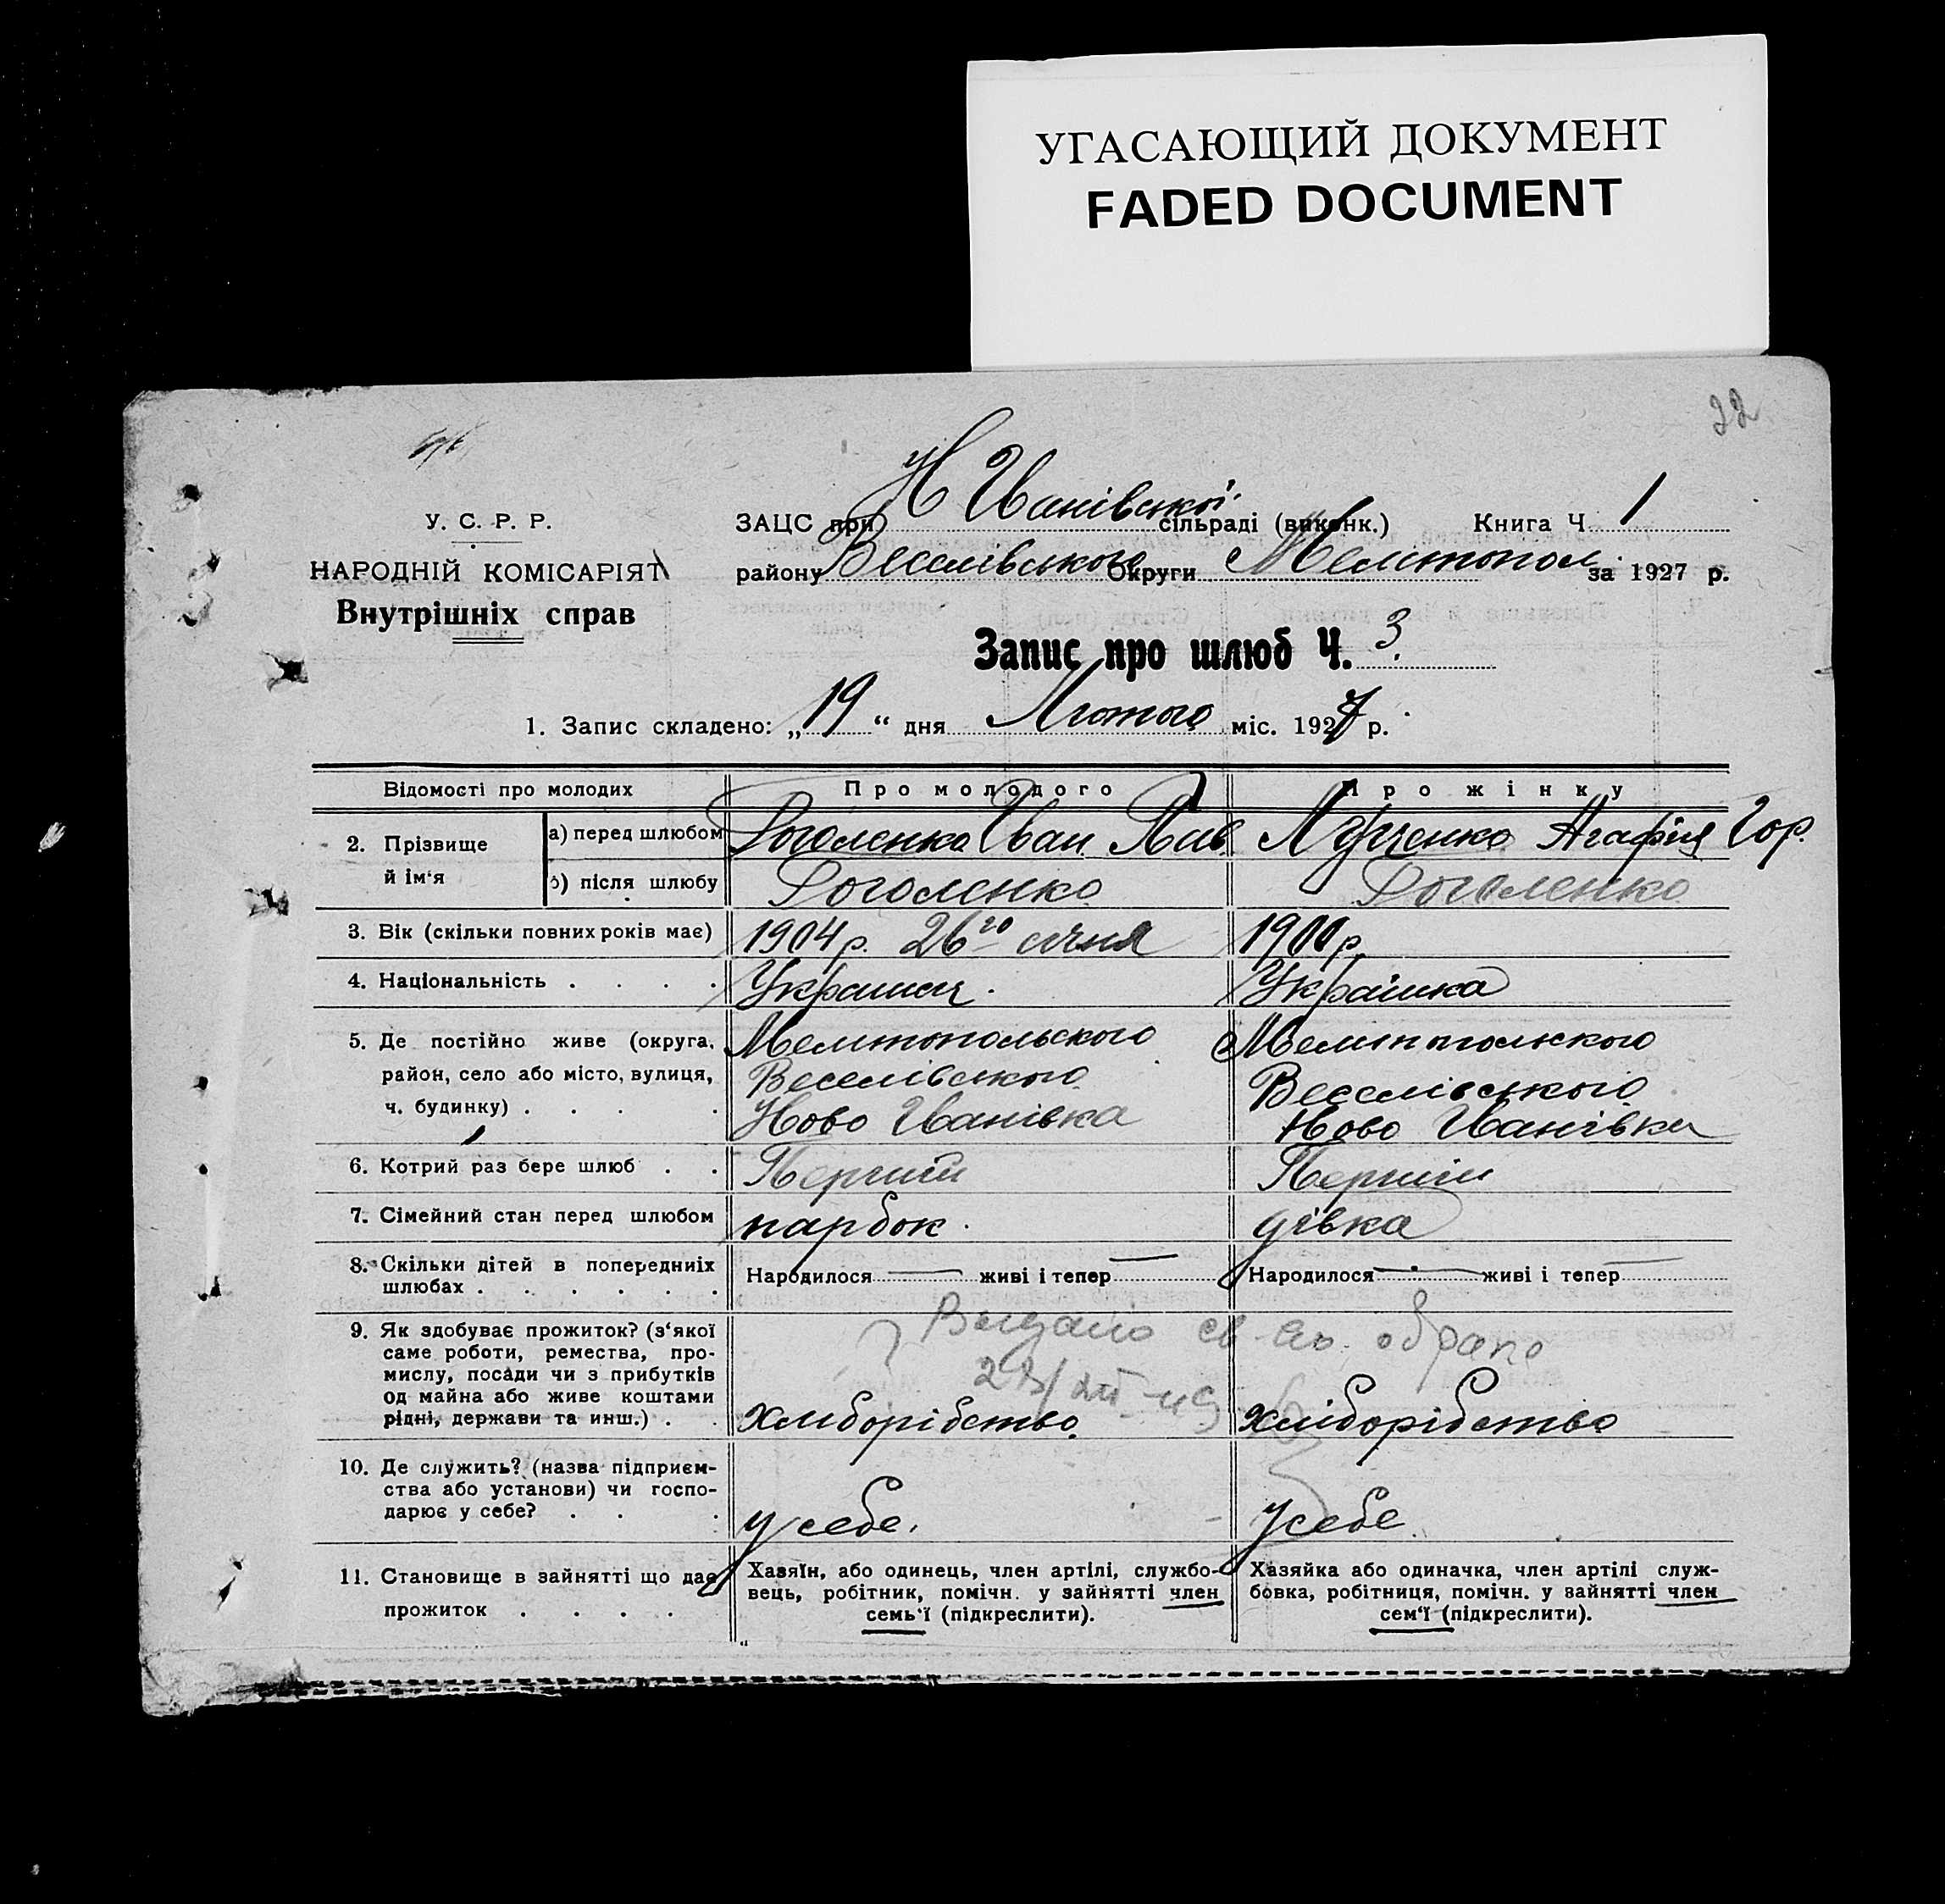 УГАСАЮЩИЙ ДОКУМЕНТ
FADED DOCUMENT
У. С. Р. Р.
НАРОДНІЙ КОМІСАРІЯТ
Внутрішніх справ
ЗАЦС при Н Іванівської сільраді (виконк.) Книга Ч. 1
району Веселівського Округи Мелитопол. за 1927 р.
Запис про шлюб Ч. 3.
1. Запис складено: „19“ дня Лютого міс. 1927 р.
Відомості про молодих Про молодого Про жінку
2. Прізвище й ім‘я
а) перед шлюбом Роголенко Іван Пав. Агафія Гор.
б) після шлюбу Роголенко Роголенко
3. Вік (скільки повних років має) 1904 р. 26го січня 1900 р.
4. Національність . . . . Українец. Українка
5. Де постійно живе (округа, район, село або місто, вулиця, ч. будинку) . . . .
Мелитопольского Мелитопольского
Веселівського Веселівського
Ново Іванівка Ново Іванівка
6. Котрий раз бере шлюб . . Перший Перший
7. Сімейний стан перед шлюбом парбок. дівка
8. Скільки дітей в попередниіх шлюбах . . . . . . Народилося — живі і тепер — Народилося — живі і тепер —
9. Як здобуває прожиток? (з‘якої
саме роботи, ремества, про-
мислу, посади чи з прибутків
од майна або живе коштами
рідні, держави та инш.) . . хлиборібство. хліборібство
10. Де служить? (назва підприєм-
ства або установи) чи госпо-
дарює у себе? . . . у себе. у себе.
11. Становище в зайнятті що дає
прожиток . . . .
Хазяїн, або одинець, член артілі, службо-
вець, робітник, помічн. у зайнятті член
семь‘ї (підкреслити).
Хазяйка або одиначка, член артілі служ-
бовка, робітниця, помічн. у зайнятті член
сем‘ї (підкреслити).